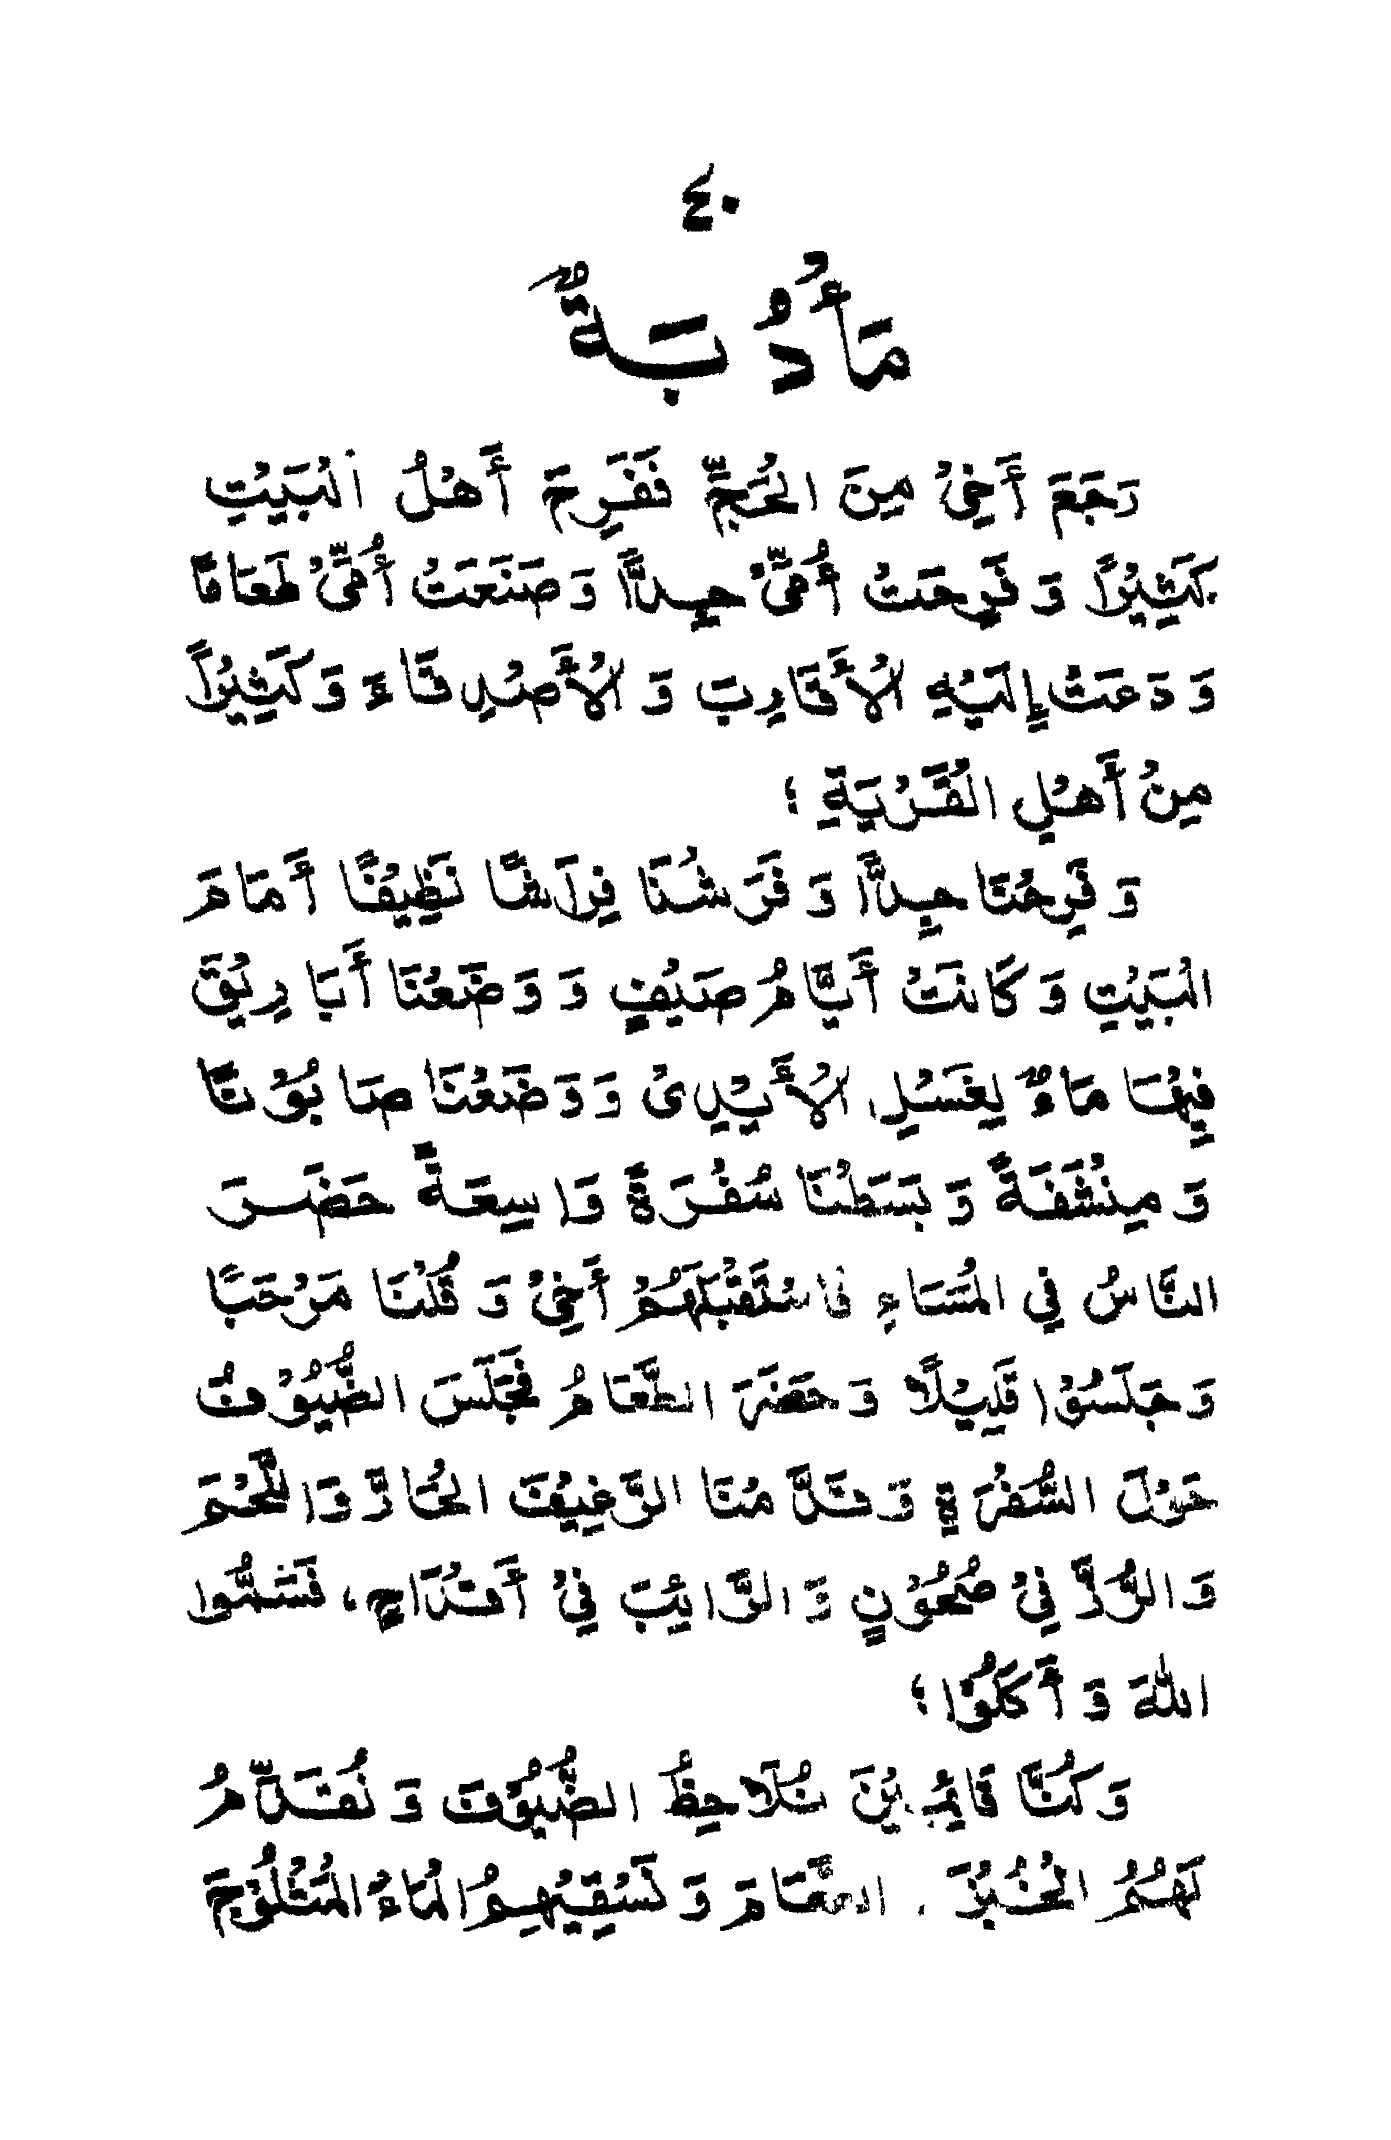 ٤٠
مَأْدُبَةٌ
رَجَعَ أَخِيْ مِنَ الْحَجِّ فَفَرِحَ أَهْلُ الْبَيْتِ
كَثِيْرًا وَ فَرِحَتْ أُمِّيْ جِدًّا وَ صَنَعَتْ أُمِّيْ طَعَامًا
وَ دَعَتْ إِلَيْهِ الْأَقَارِبَ وَ الْأَصْدِقَاءَ وَ كَثِيْرًا
مِنْ أَهْلِ الْقَرْيَةِ ؛
وَ فَرِحْنَا جِدًّا وَ فَرَشْنَا فِرَاشًا نَظِيْفًا أَمَامَ
الْبَيْتِ وَ كَانَتْ أَيَّامُ صَيْفٍ وَ وَضَعْنَا أَبَارِيْقَ
فِيْهَا مَاءٌ لِغَسْلِ الْأَيْدِيْ وَ وَضَعْنَا صَابُوْنًا
وَ مِنْشَفَةً وَ بَسَطْنَا سُفْرَةً وَاسِعَةً حَضَرَ
النَّاسُ فِي الْمَسَاءِ فَاسْتَقْبَلَهُمْ أَخِيْ وَ قُلْنَا مَرْحَبًا
وَ جَلَسُوْا قَلِيْلًا وَ حَضَرَ الطَّعَامُ فَجَلَسَ الضُّيُوْفُ
حَوْلَ السُّفْرَةِ وَ قَدَّمْنَا الرَّغِيْفَ الْحَارَّ وَاللَّحْمَ
وَ الرُّزَّ فِيْ صُحُوْنٍ وَ الرَّائِبَ فِيْ أَقْدَاحٍ، فَسَمَّوا
اللهَ وَ أَكَلُوْا ؛
وَ كُنَّا قَائِمِيْنَ نُلَاحِظُ الضُّيُوْفَ وَ نُقَدِّمُ
لَهُمُ الْخُبْزَ . الطَّعَامَ وَ نَسْقِيْهِمُ الْمَاءَ الْمَثْلُوْجَ